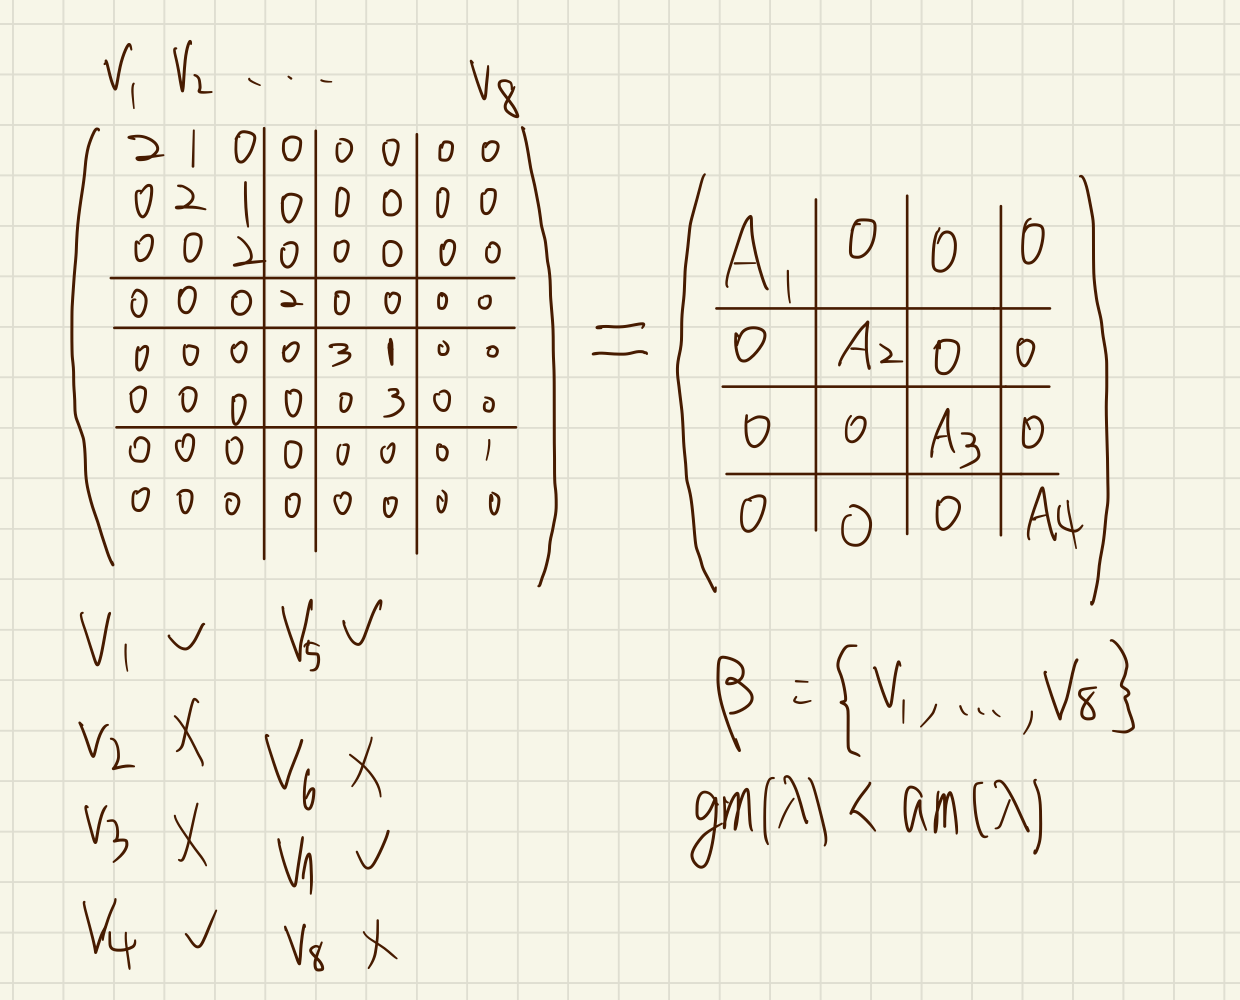 V1 V2 ... V8
2 1 0 0 0 0 0 0
0 2 1 0 0 0 0 0
0 0 2 0 0 0 0 0
0 0 0 2 0 0 0 0
0 0 0 0 3 1 0 0
0 0 0 0 0 3 0 0
0 0 0 0 0 0 0 1
0 0 0 0 0 0 0 0
=
A1 0 0 0
0 A2 0 0
0 0 A3 0
0 0 0 A4
V1 ✓
V2 ×
V3 ×
V4 ✓
V5 ✓
V6 ×
V7 ✓
V8 ×
β = {V1, ..., V8}
gm(λ) < am(λ)